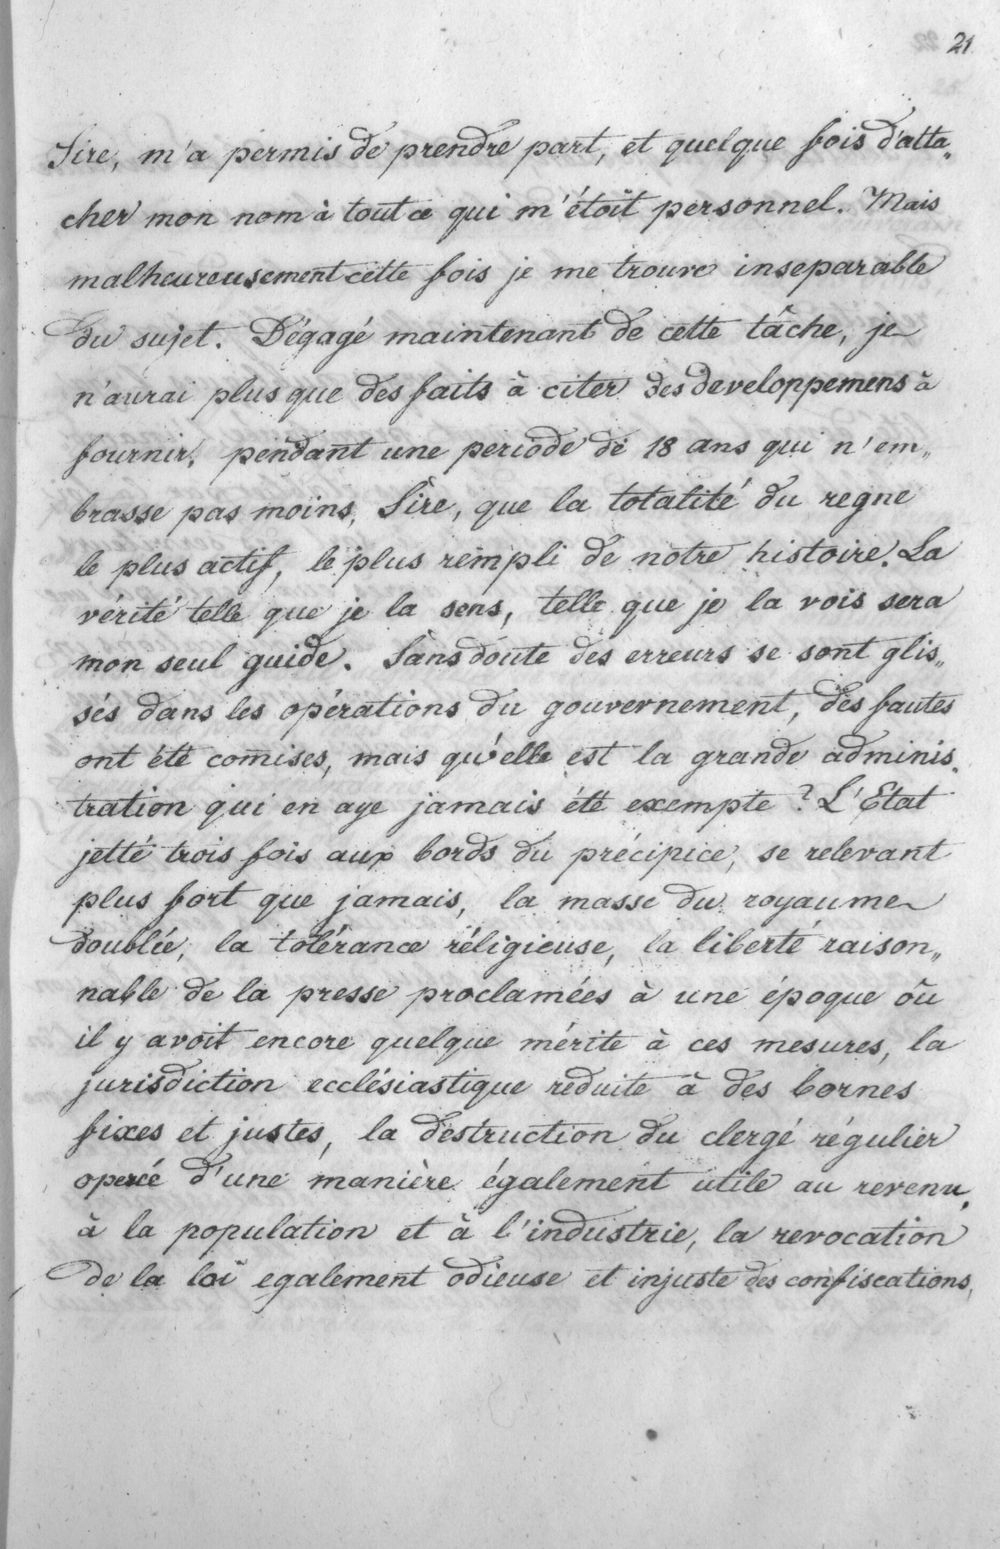 21
Sire, m'a permis de prendre part, et quelque fois d'atta„
cher mon nom à tout ce qui m'étoit personnel. Mais
malheureusement cette fois je me trouve inseparable
du sujet. Dégagé maintenant de cette tâche, je
n'aurai plus que des faits à citer des developpemens à
fournir, pendant une periode de 18 ans qui n'em„
brasse pas moins, Sire, que la totalité du regne
le plus actif, le plus rempli de notre histoire. La
vérité telle que je la sens, telle que je la vois sera
mon seul guide. Sans doute des erreurs se sont glis„
sés dans les opérations du gouvernement, des fautes
ont été comises, mais qu'elle est la grande adminis„
tration qui en aye jamais été exempte? L'Etat
jetté trois fois aux bords du précipice, se relevant
plus fort que jamais, la masse du royaume
doublée, la tolérance réligieuse, la liberté raison„
nable de la presse proclamées à une époque où
il y avoit encore quelque mérite à ces mesures, la
jurisdiction ecclésiastique reduite à des bornes
fixes et justes, la destruction du clergé régulier
operée d'une manière également utile au revenu,
à la population et à l'industrie, la revocation
de la loi egalement odieuse et injuste des confiscations,